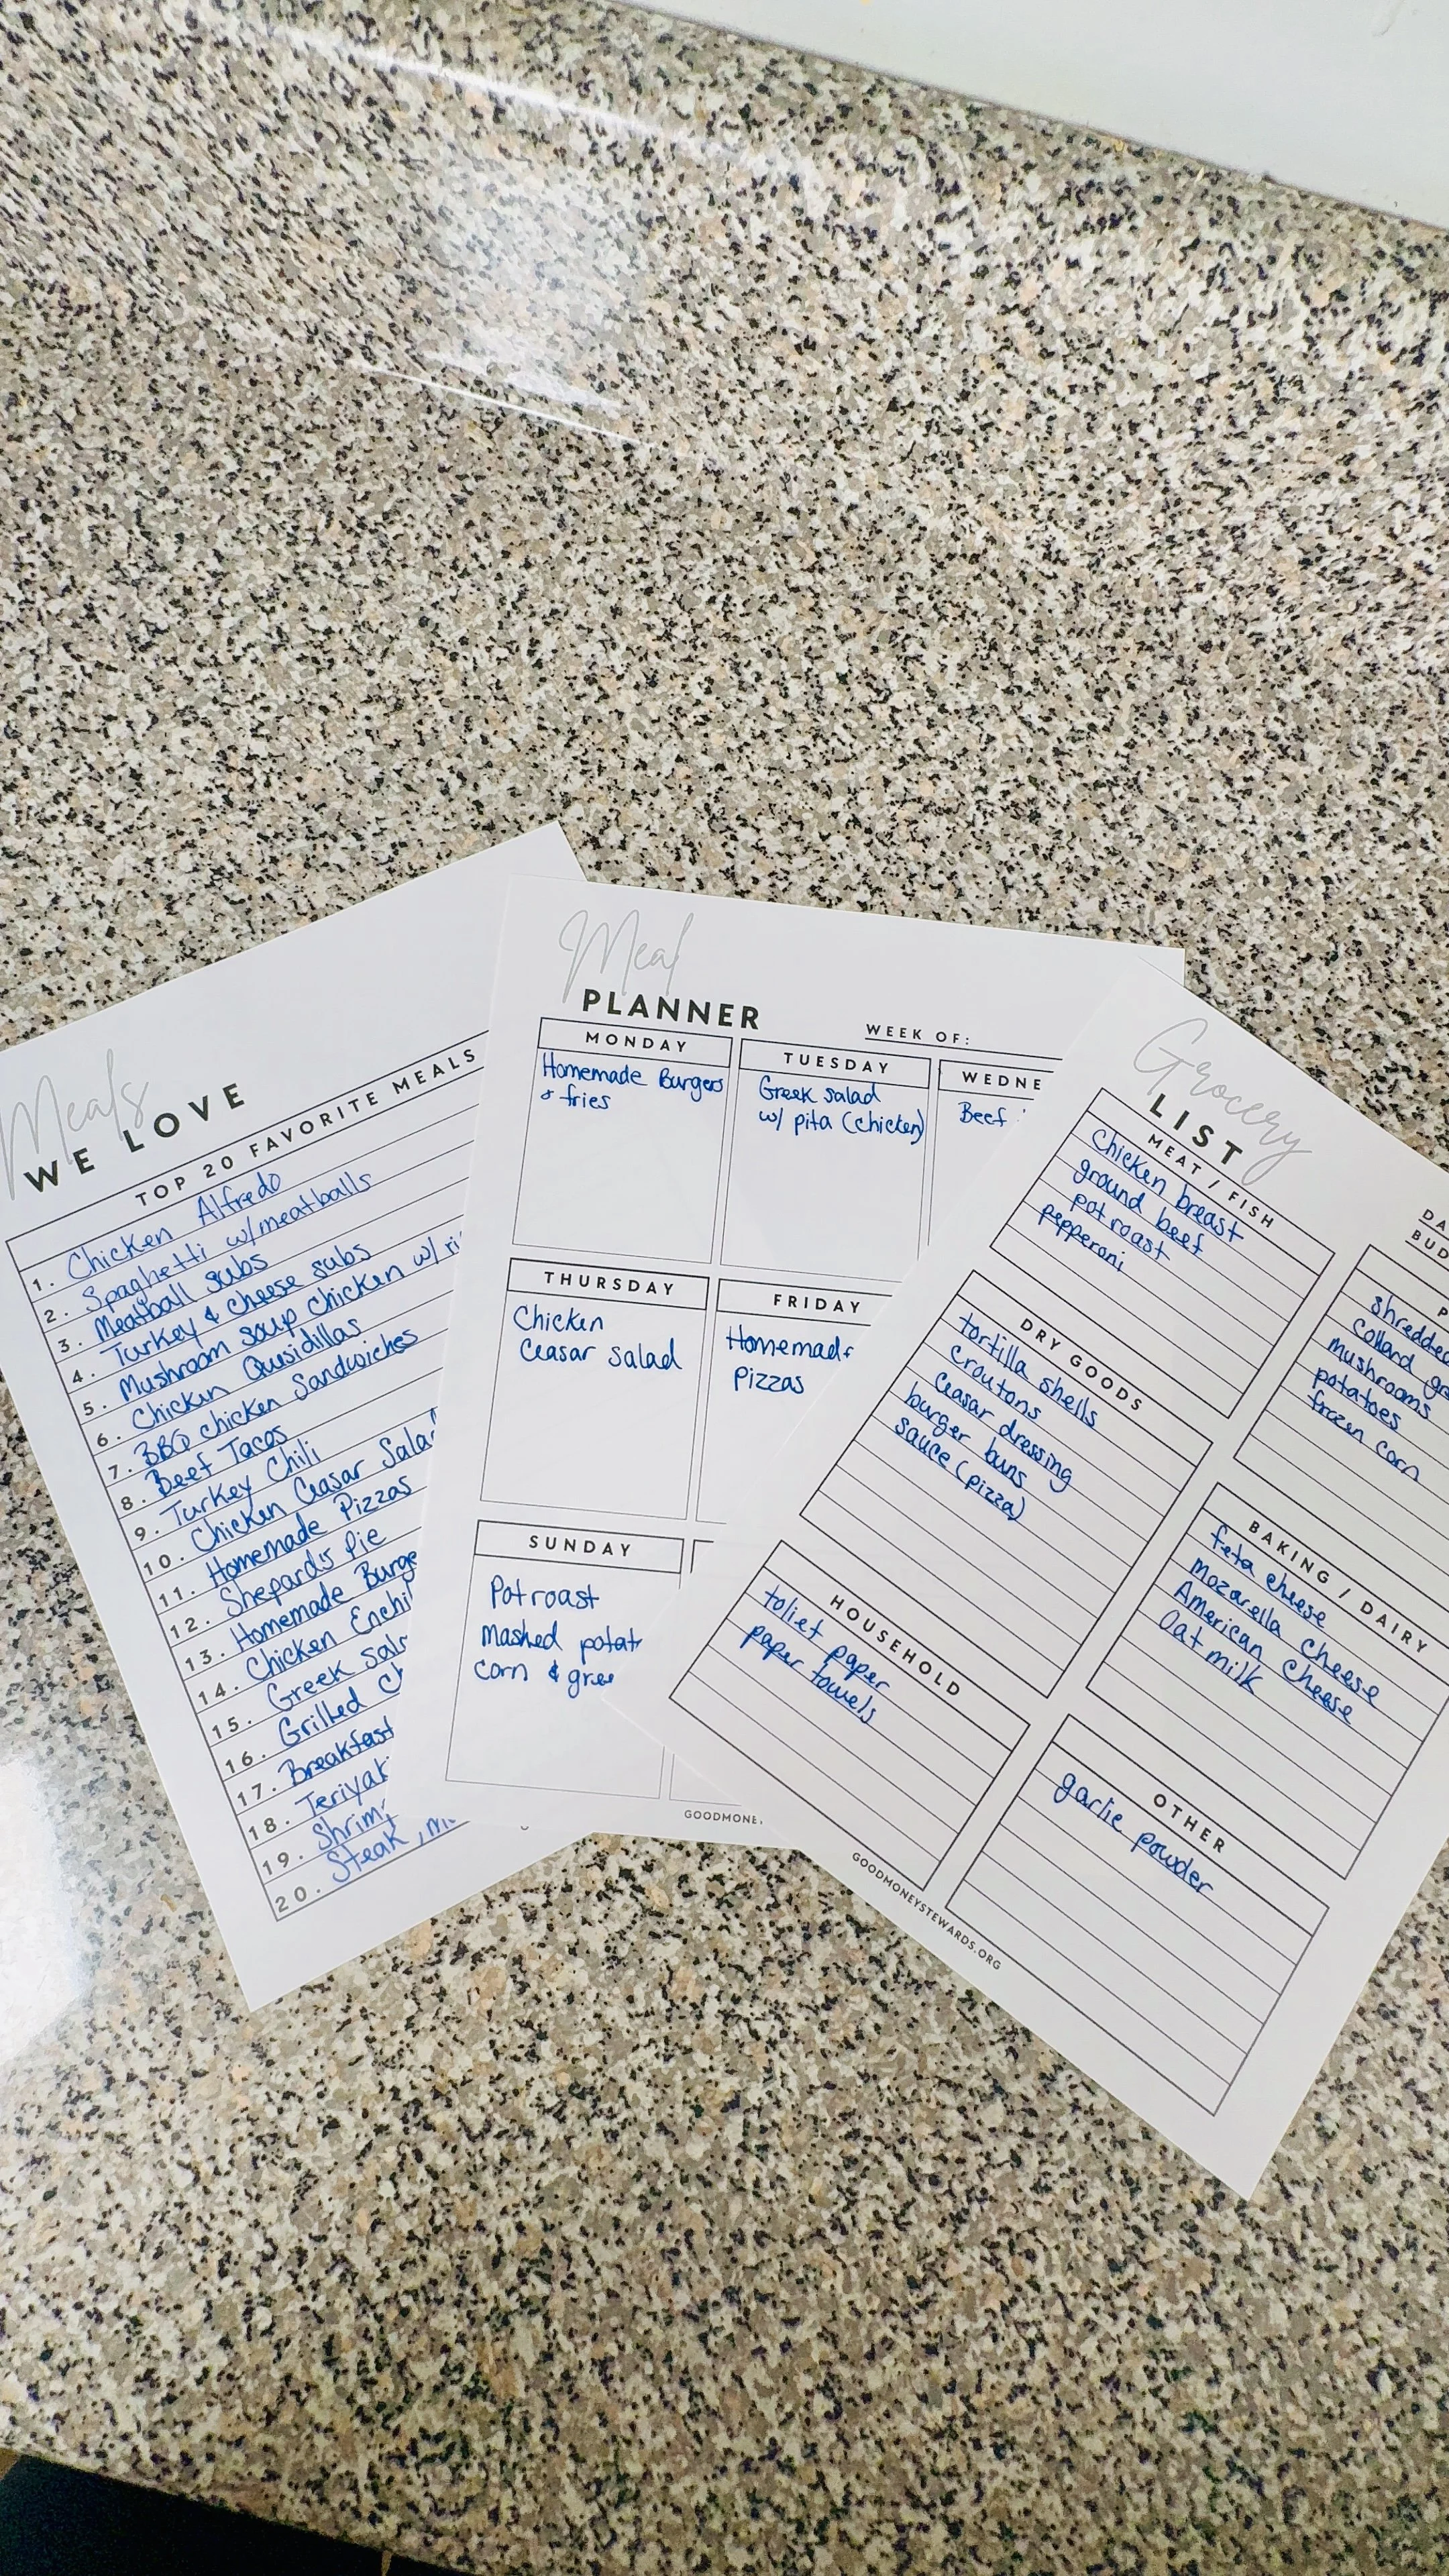 Meals
WE LOVE
TOP 20 FAVORITE MEALS
1. Chicken Alfredo
2. Spaghetti w/meatballs
3. Meatball subs
4. Turkey & cheese subs
5. Mushroom soup chicken w/
6. Chicken Qusidillas
7. BBQ chicken Sandwiches
8. Beef Tacos
9. Turkey Chili
10. Chicken Ceasar
11. Homemade Pizzas
12. Shepards Pie
13. Homemade
14. Chicken
15. Greek
16. Grilled
17. Breakfast
18.
19.
20. Steak,
Meal
PLANNER
WEEK OF:
MONDAY
Homemade Burgers
& fries
TUESDAY
Greek salad
w/ pita (chicken)
WEDNE
Beef
THURSDAY
Chicken
Ceasar salad
FRIDAY
Homemade
Pizzas
SUNDAY
Pot roast
mashed
corn &
GOODMONE
Grocery
LIST
MEAT / FISH
Chicken breast
ground beef
pot roast
pepperoni
DRY GOODS
tortilla shells
croutons
Ceasar dressing
burger buns
sauce (pizza)
HOUSEHOLD
toliet paper
paper towels
DA
BUD
P
shredded
collard
mushrooms
potatoes
frozen corn
BAKING / DAIRY
feta cheese
mozarella cheese
American cheese
Oat milk
OTHER
garlic powder
GOODMONEYSTEWARDS.ORG